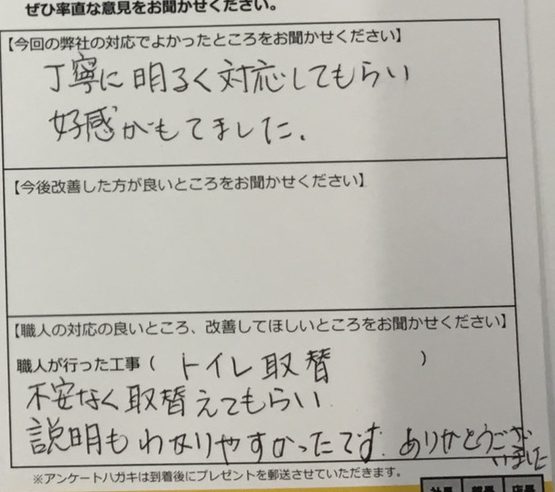 ぜひ率直な意見をお聞かせください。
【今回の弊社の対応でよかったところをお聞かせください】
丁寧に明るく対応してもらい
好感がもてました.
【今後改善した方が良いところをお聞かせください】
【職人の対応の良いところ、改善してほしいところをお聞かせください】
職人が行った工事（ トイレ取替 ）
不安なく取替えてもらい
説明もわかりやすかったです. ありがとうござ
いました
※アンケートハガキは到着後にプレゼントを郵送させていただきます。
社長 部長 店長